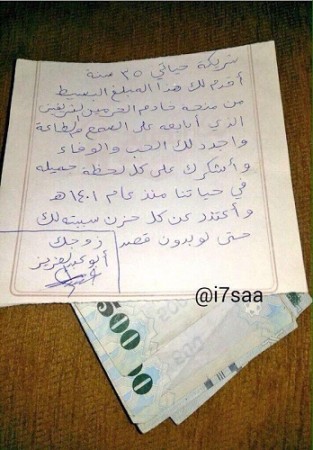 شريكة حياتي ٣٥ سنة
أقدم لك هذا المبلغ البسيط
من منحة خادم الحرمين الشريفين
الذي أبايعه على السمع والطاعة
واجدد لك الحب والوفاء
وأشكرك على كل لحظة جميله
في حياتنا منذ عام ١٤٠١هـ
وأعتذر عن كل حزن سببته لك
حتى لو بدون قصد
زوجك
أبو عبدالعزيز
@i7saa
500
00